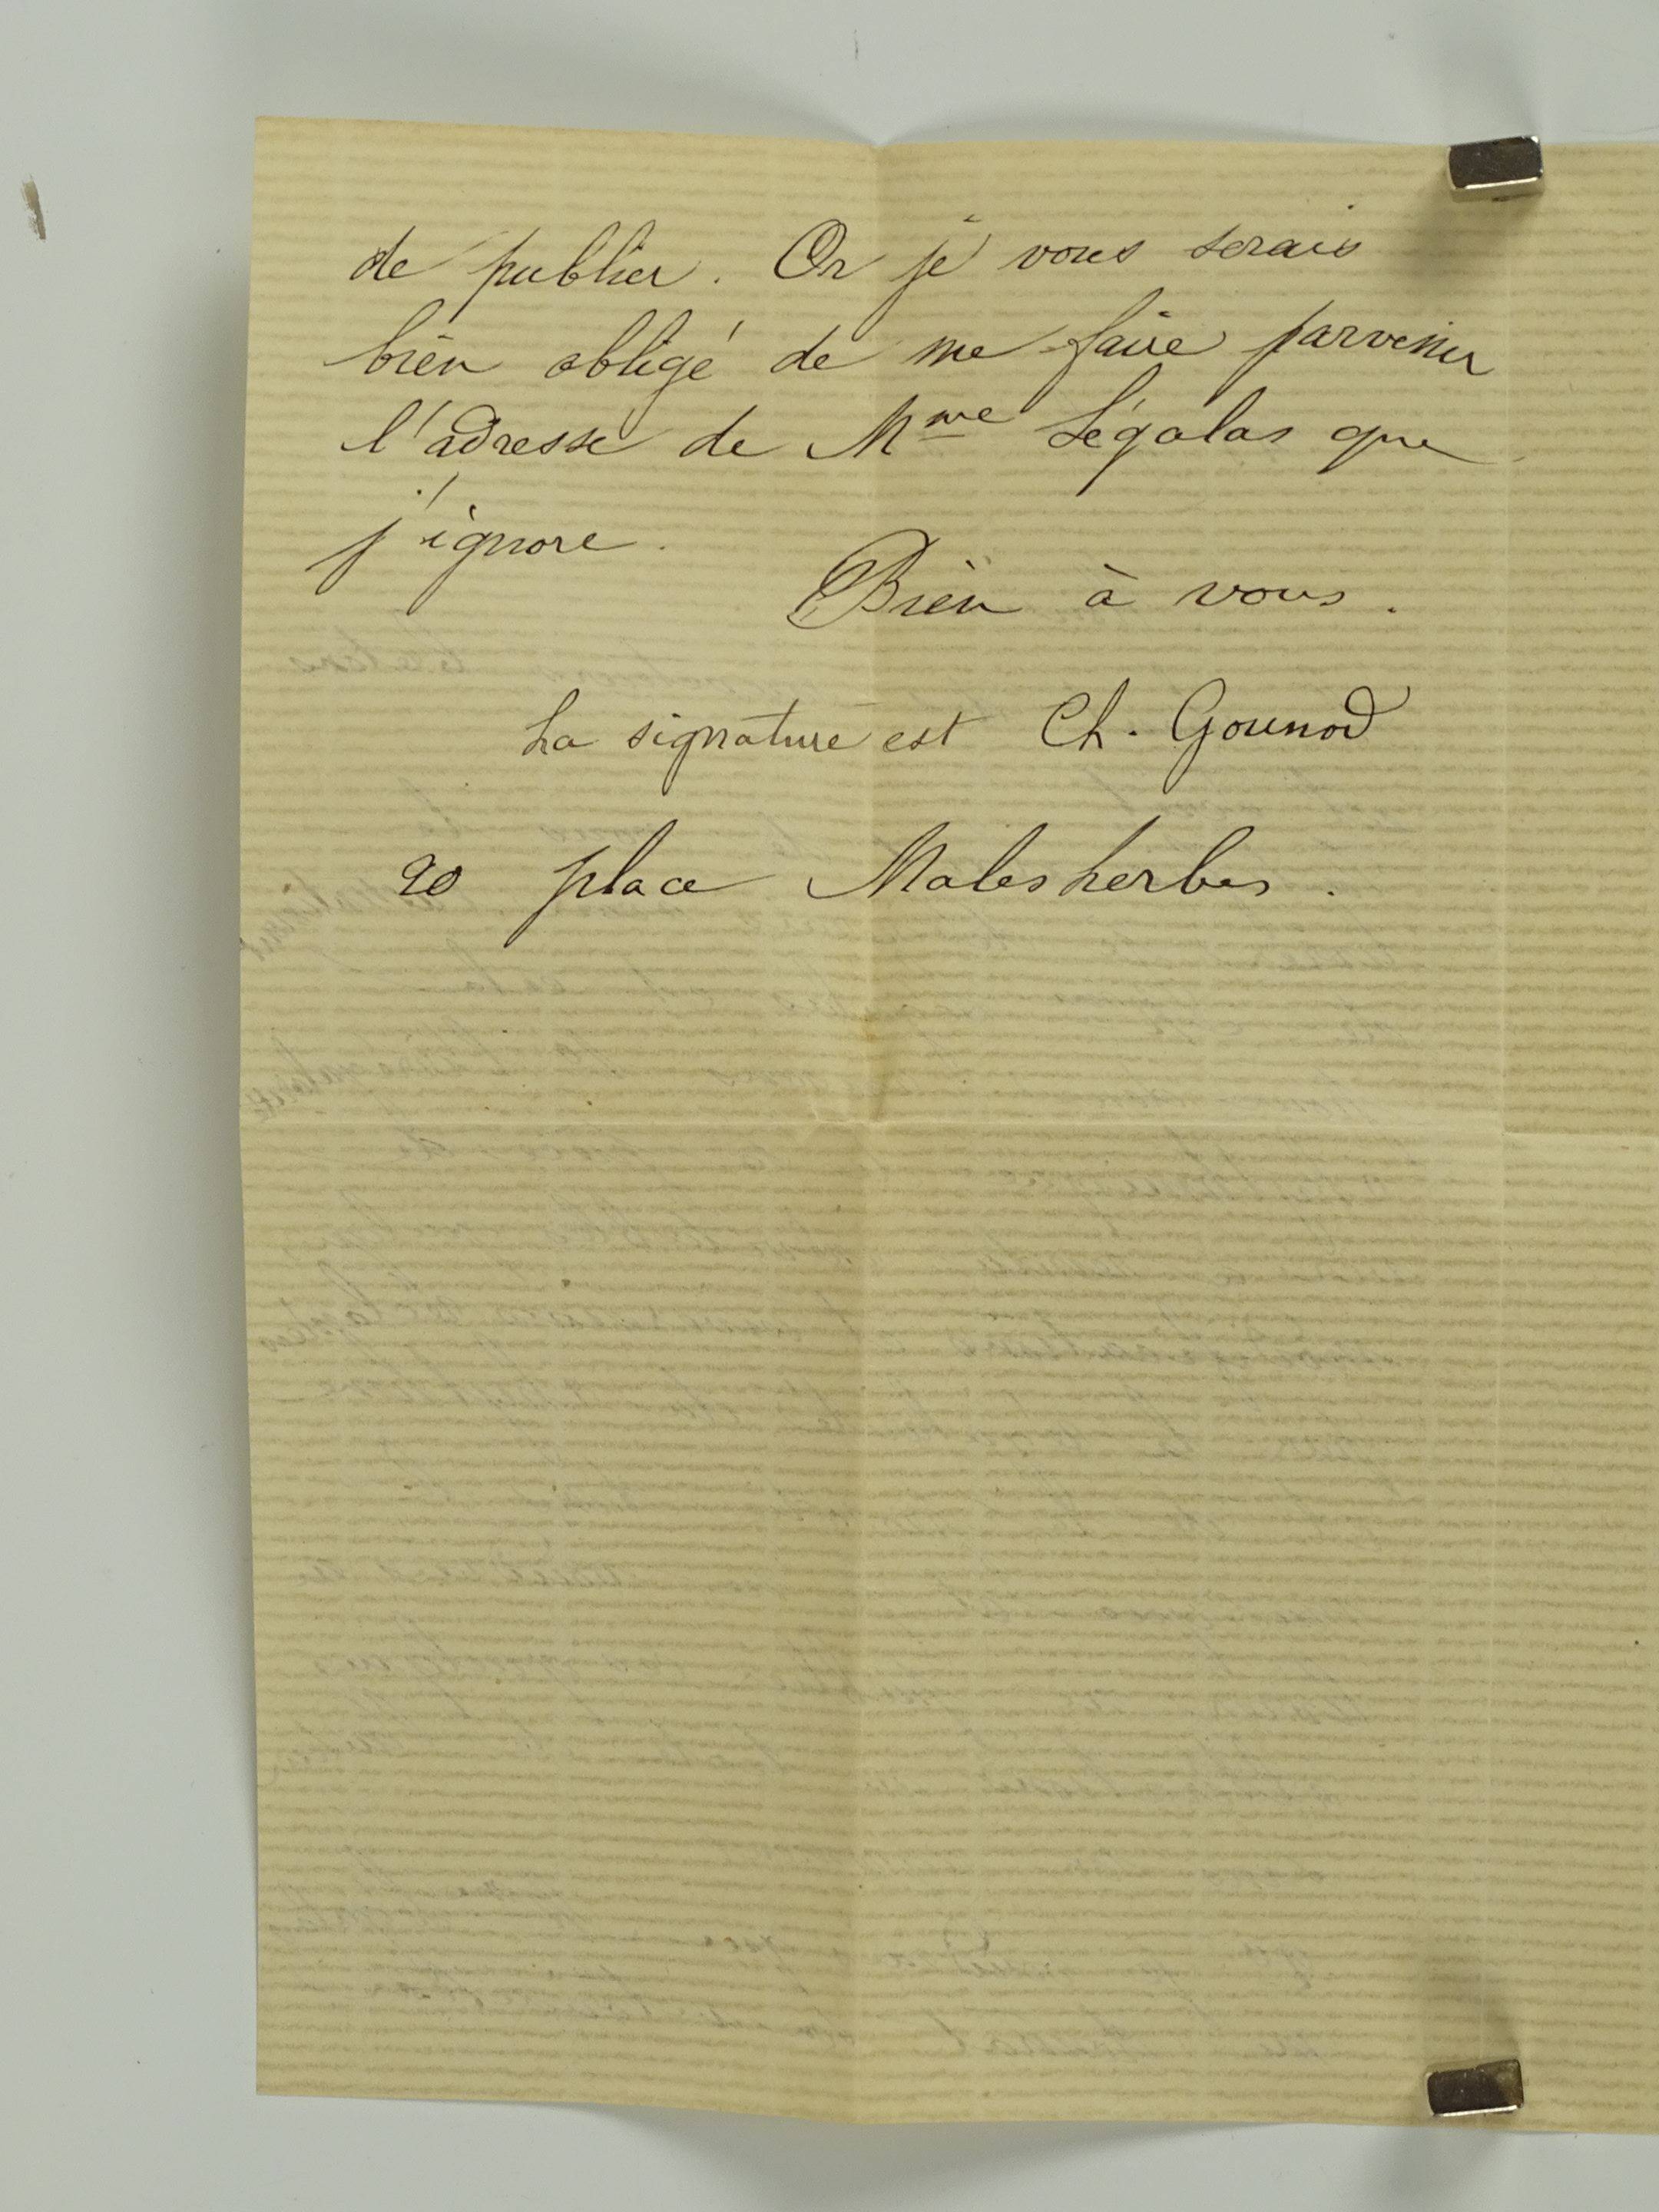 de publier. Or je vous serais
bien obligé de me faire parvenir
l'adresse de Mme Ségalas que
j'ignore.
Bien à vous.
La signature est Ch. Gounod
20 place Malesherbes.